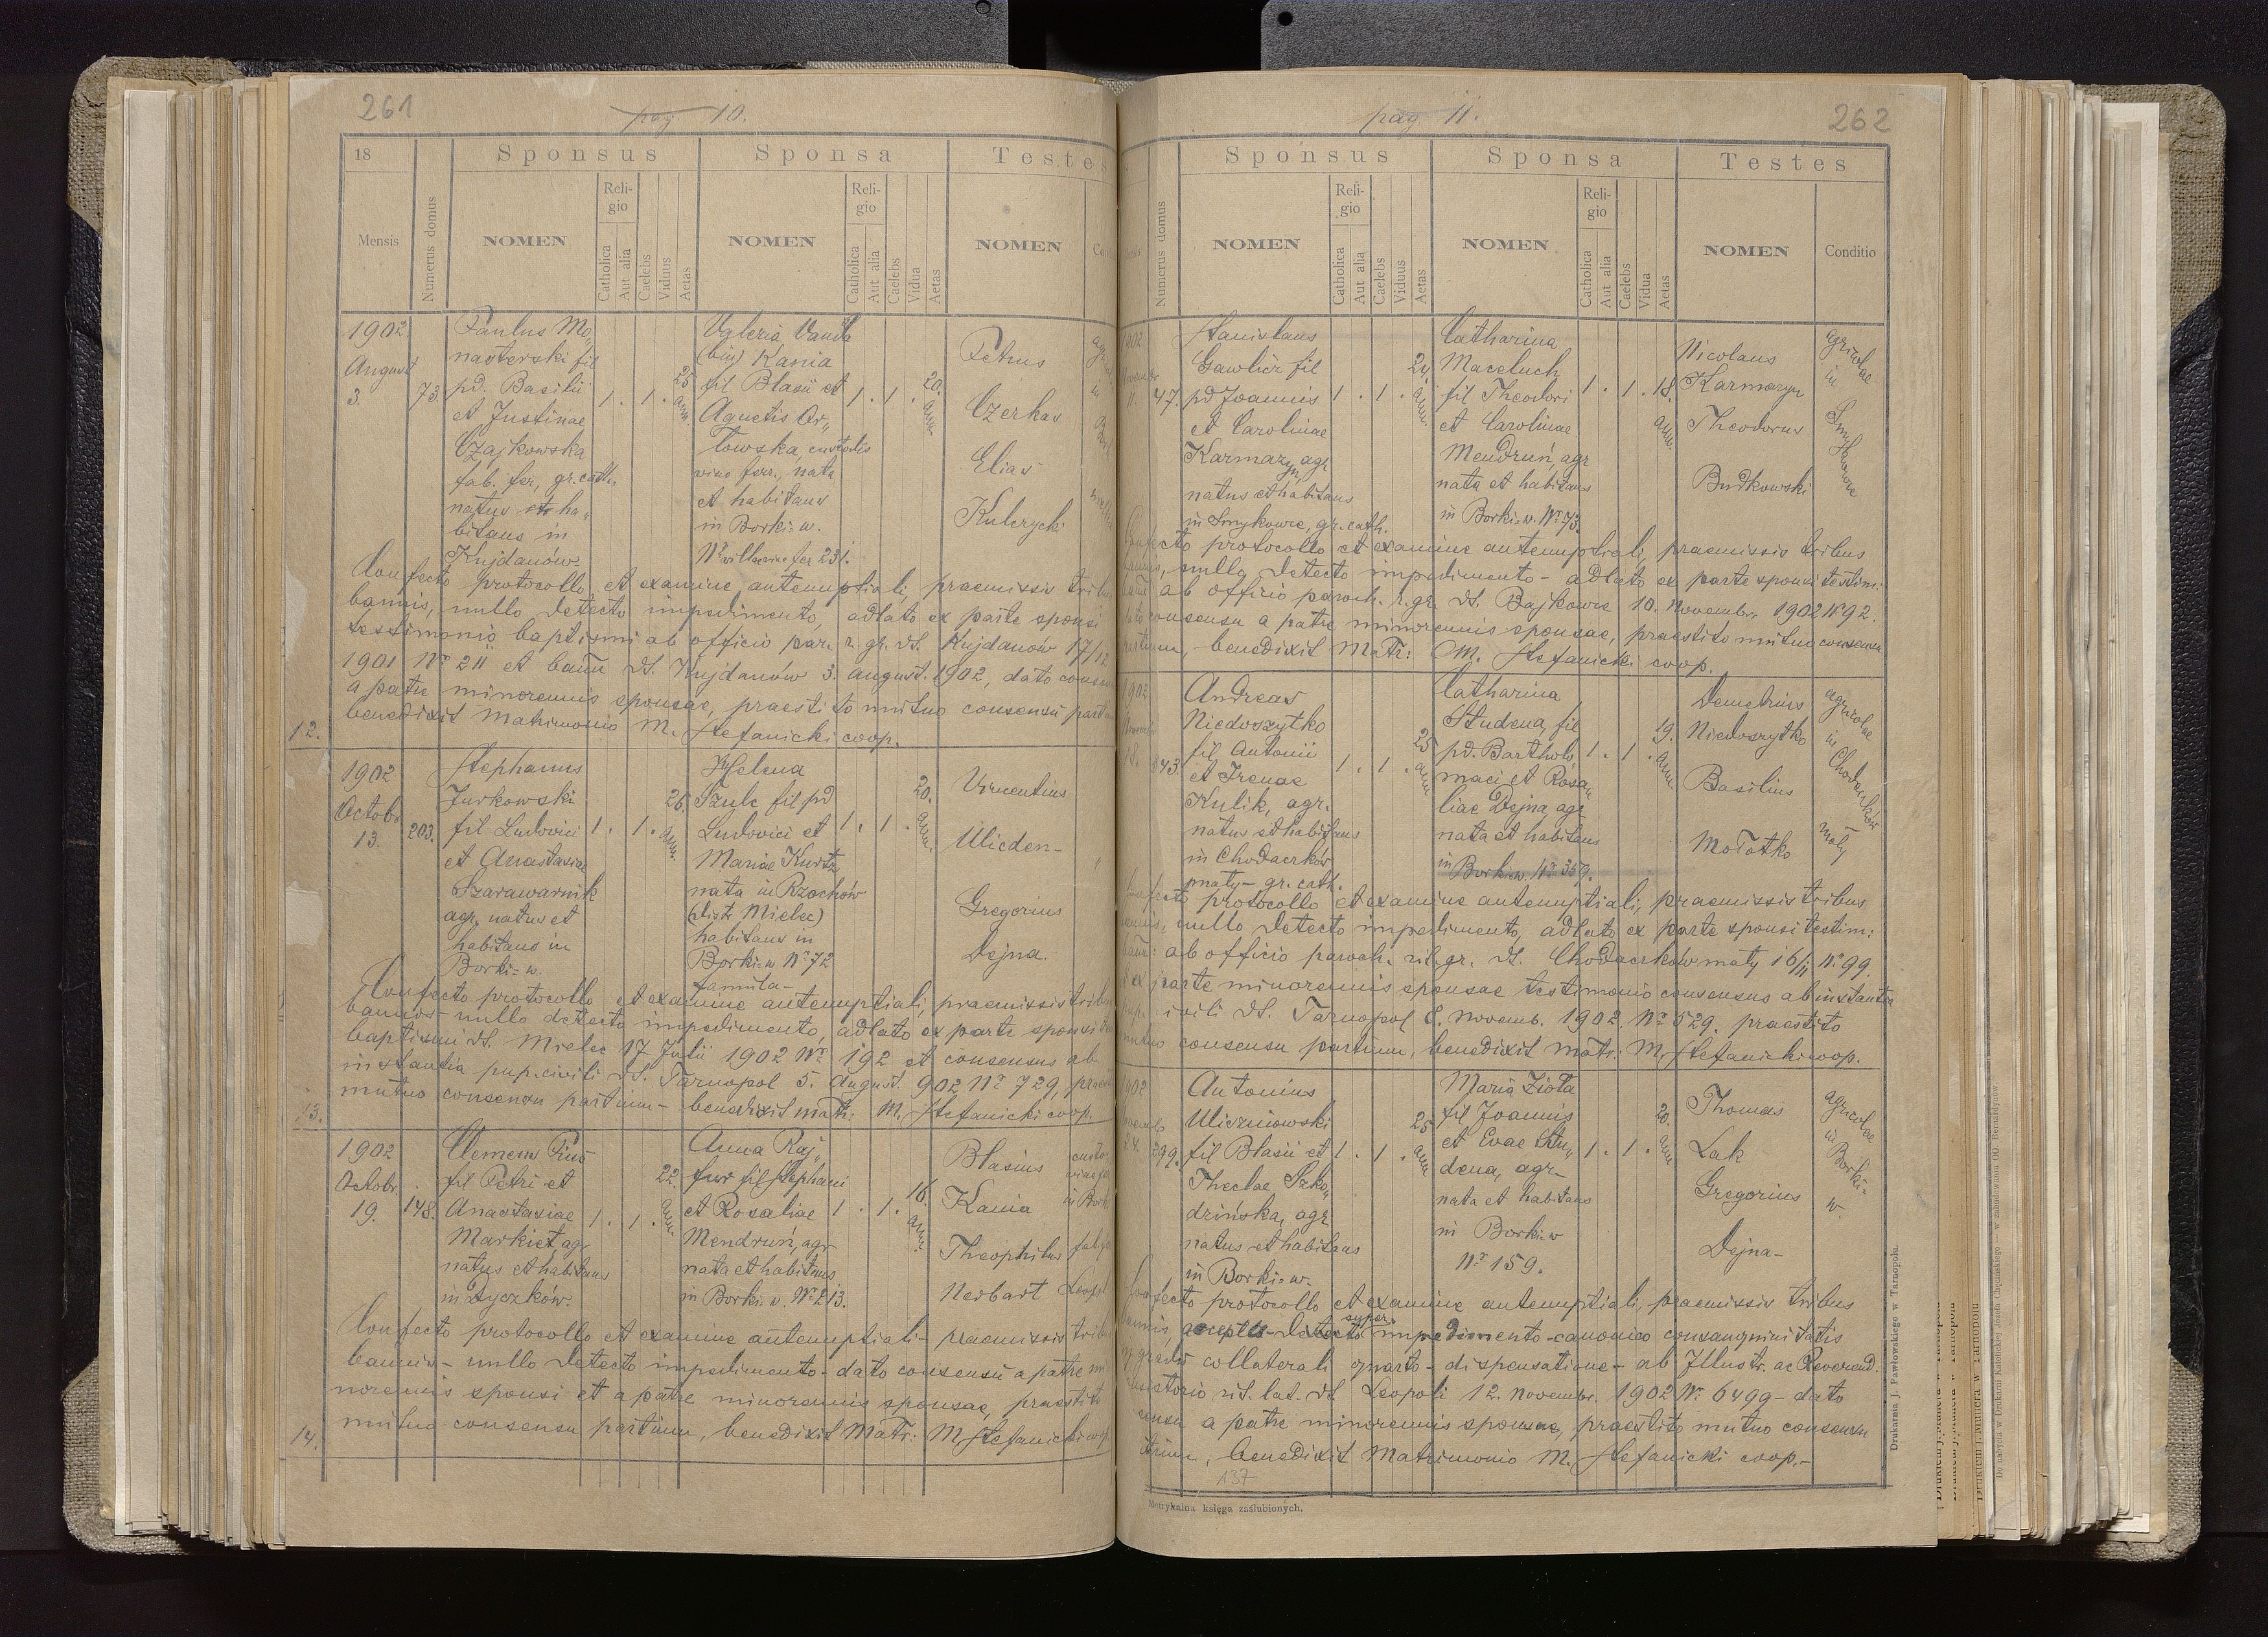 261
pag. 10.
18
Sponsus
Sponsa
Testes
Mensis
Numerus domus
NOMEN
Religio
Catholica
Aut alia
Caelebs
Viduus
Aetas
NOMEN
Religio
Catholica
Aut alia
Caelebs
Vidua
Aetas
NOMEN
1902
August
3.
73.
Paulus Mo„
nasterski fil
pd. Basilii
et Justinae
Czajkowska
fab. fer, gr. cath.
natus et ha„
bitans in
Kujdanów.
1. 1.
25 ann.
Valeria Vanda
(bin) Kania
fil Blasii et
Agnetis Or„
łowska, custodis
viae ferr., nata
et habitans
in Borki w.
1. 1.
20. ann.
Petrus
Czerkas
Elias
Kulczycki
Confecto protocollo et examine antenuptiali, praemissis tribus
bannis, nullo detecto impedimento, adlato ex parte sponsi
testimonio baptismi ab officio par. r. gr. dt. Kujdanów 17/12
1901 Nr 211 et bann dt. Kujdanów 3. august. 1902, dato consensu
a patre minorennis sponsae, praestito mutuo consensu partium
benedixit Matrimonio M. Stefanicki coop.
12.
1902
Octobr
13.
203.
Stephanus
Jurkowski
fil Ludovici
et Anastasiae
Szarawarnik
agr. natus et
habitans in
Borki-w.
1. 1.
26. ann.
Helena
Szulc fil pd
Ludovici et
Mariae Kurtz
nata in Rzochów
(distr Mielec)
habitans in
Borki-w Nr 72
famula-
1. 1.
20. ann.
Vincentius
Uliczn-
Gregorius
Dejna.
Confecto protocollo et examine antenuptiali, praemissis tribus
bannis- nullo detecto impedimento, adlato ex parte sponsi
baptismi dt. Mielec 17 Julii 1902 Nr 192 et consensus ab
instantia pup. civili dt. Tarnopol 5. August. 902 Nr 729,
mutuo consensu partium- benedixit matr: M. Stefanicki coop.
13.
1902
Octobr.
19.
148.
Clemens
fil Petri et
Anastasiae
Markiet, agr
natus et habitans
in Dyczków.
1. 1.
22. ann.
Anna Raj„
fur fil Stephani
et Rosaliae
Mendruń, agr
nata et habitans
in Borki w. Nr 213.
1. 1.
16. ann.
Blasius
Kania
Theophilus
Nerbart
Confecto protocollo et examine antenuptiali- praemissis tribus
bannis- nullo detecto impedimento- dato consensu a patre mi
norennis sponsi et a patre minorennis sponsae, praestito
mutuo consensu partium, benedixit Matr: M Stefanicki coop
14.
pag 11.
262
Sponsus
Sponsa
Testes
Numerus domus
NOMEN
Religio
Catholica
Aut alia
Caelebs
Viduus
Aetas
NOMEN
Religio
Catholica
Aut alia
Caelebs
Vidua
Aetas
NOMEN
Conditio
1902
11.
47.
Stanislaus
Gawlicz fil
pd Joannis
et Carolinae
Karmazyn, agr
natus et habitans
in Smykowce, gr. cath.
1. 1.
24 ann.
Catharina
Maceluch
fil Theodori
et Carolinae
Mendruń, agr
nata et habitans
in Borki w. Nr 73.
1. 1.
18. ann.
Nicolaus
Karmazyn
Theodorus
Budkowski
agricolae
in
Smykowce
Confecto protocollo et examine antenuptiali, praemissis tribus
bannis, nullo detecto impedimento- adlato ex parte sponsi testim:
bann: ab officio paroch. r. gr. dt. Bajkowce 10. Novembr. 1902 Nr 92.
dato consensu a patre minorennis sponsae, praestito mutuo consensu
partium,- benedixit Matr: M. Stefanicki coop.
1902
18.
843.
Andreas
Niedoszytko
fil. Antonii
et Irenae
Kulik, agr.
natus et habitans
in Chodaczków
mały- gr. cath.
1. 1.
25 ann
Catharina
Studena, fil
pd. Bartholo„
maei et Rosa„
liae Dejna, agr
nata et habitans
in Borki w. Nr 359.
1. 1.
19. ann.
Demetrius
Niedoszytko
Basilius
Mołotko
agricolae
in
Chodaczków
mały
Confecto protocollo et examine antenuptiali, praemissis tribus
bannis, nullo detecto impedimento, adlato ex parte sponsi testim:
bann: ab officio paroch. rit. gr. dt. Chodaczków mały 16/11 Nr 99.
et ex parte minorennis sponsae testimonio consensus ab instantia
pup. civili dt. Tarnopol 8. Novemb. 1902. Nr 529. praestito
mutuo consensu partium, benedixit matr: M. Stefanicki coop.
1902
24.
299.
Antonius
Uliczniowski
fil Blasii et
Theclae Szko„
dzińska, agr
natus et habitans
in Borki w.
1. 1.
25 ann
Maria Zioła
fil Joannis
et Evae Stu„
dena, agr-
nata et habitans
in Borki w
Nr 159.
1. 1.
20. ann
Thomas
Lak
Gregorius
Dejna-
agricolae
in
Borki-
w.
Confecto protocollo et examine antenuptiali, praemissis tribus
bannis, accepta- detecto super impedimento-canonico consanguinitatis
in gradu collaterali quarto- dispensatione- ab Illustr. ac Reverend.
Consistorio rit. lat. dt Leopoli 12. Novembr. 1902 Nr 6499- dato
consensu a patre minorennis sponsae, praestito mutuo consensu
partium, benedixit Matrimonio M. Stefanicki coop.-
137
Metrykalna księga zaślubionych.
Drukarnia J. Pawłowskiego w Tarnopolu.